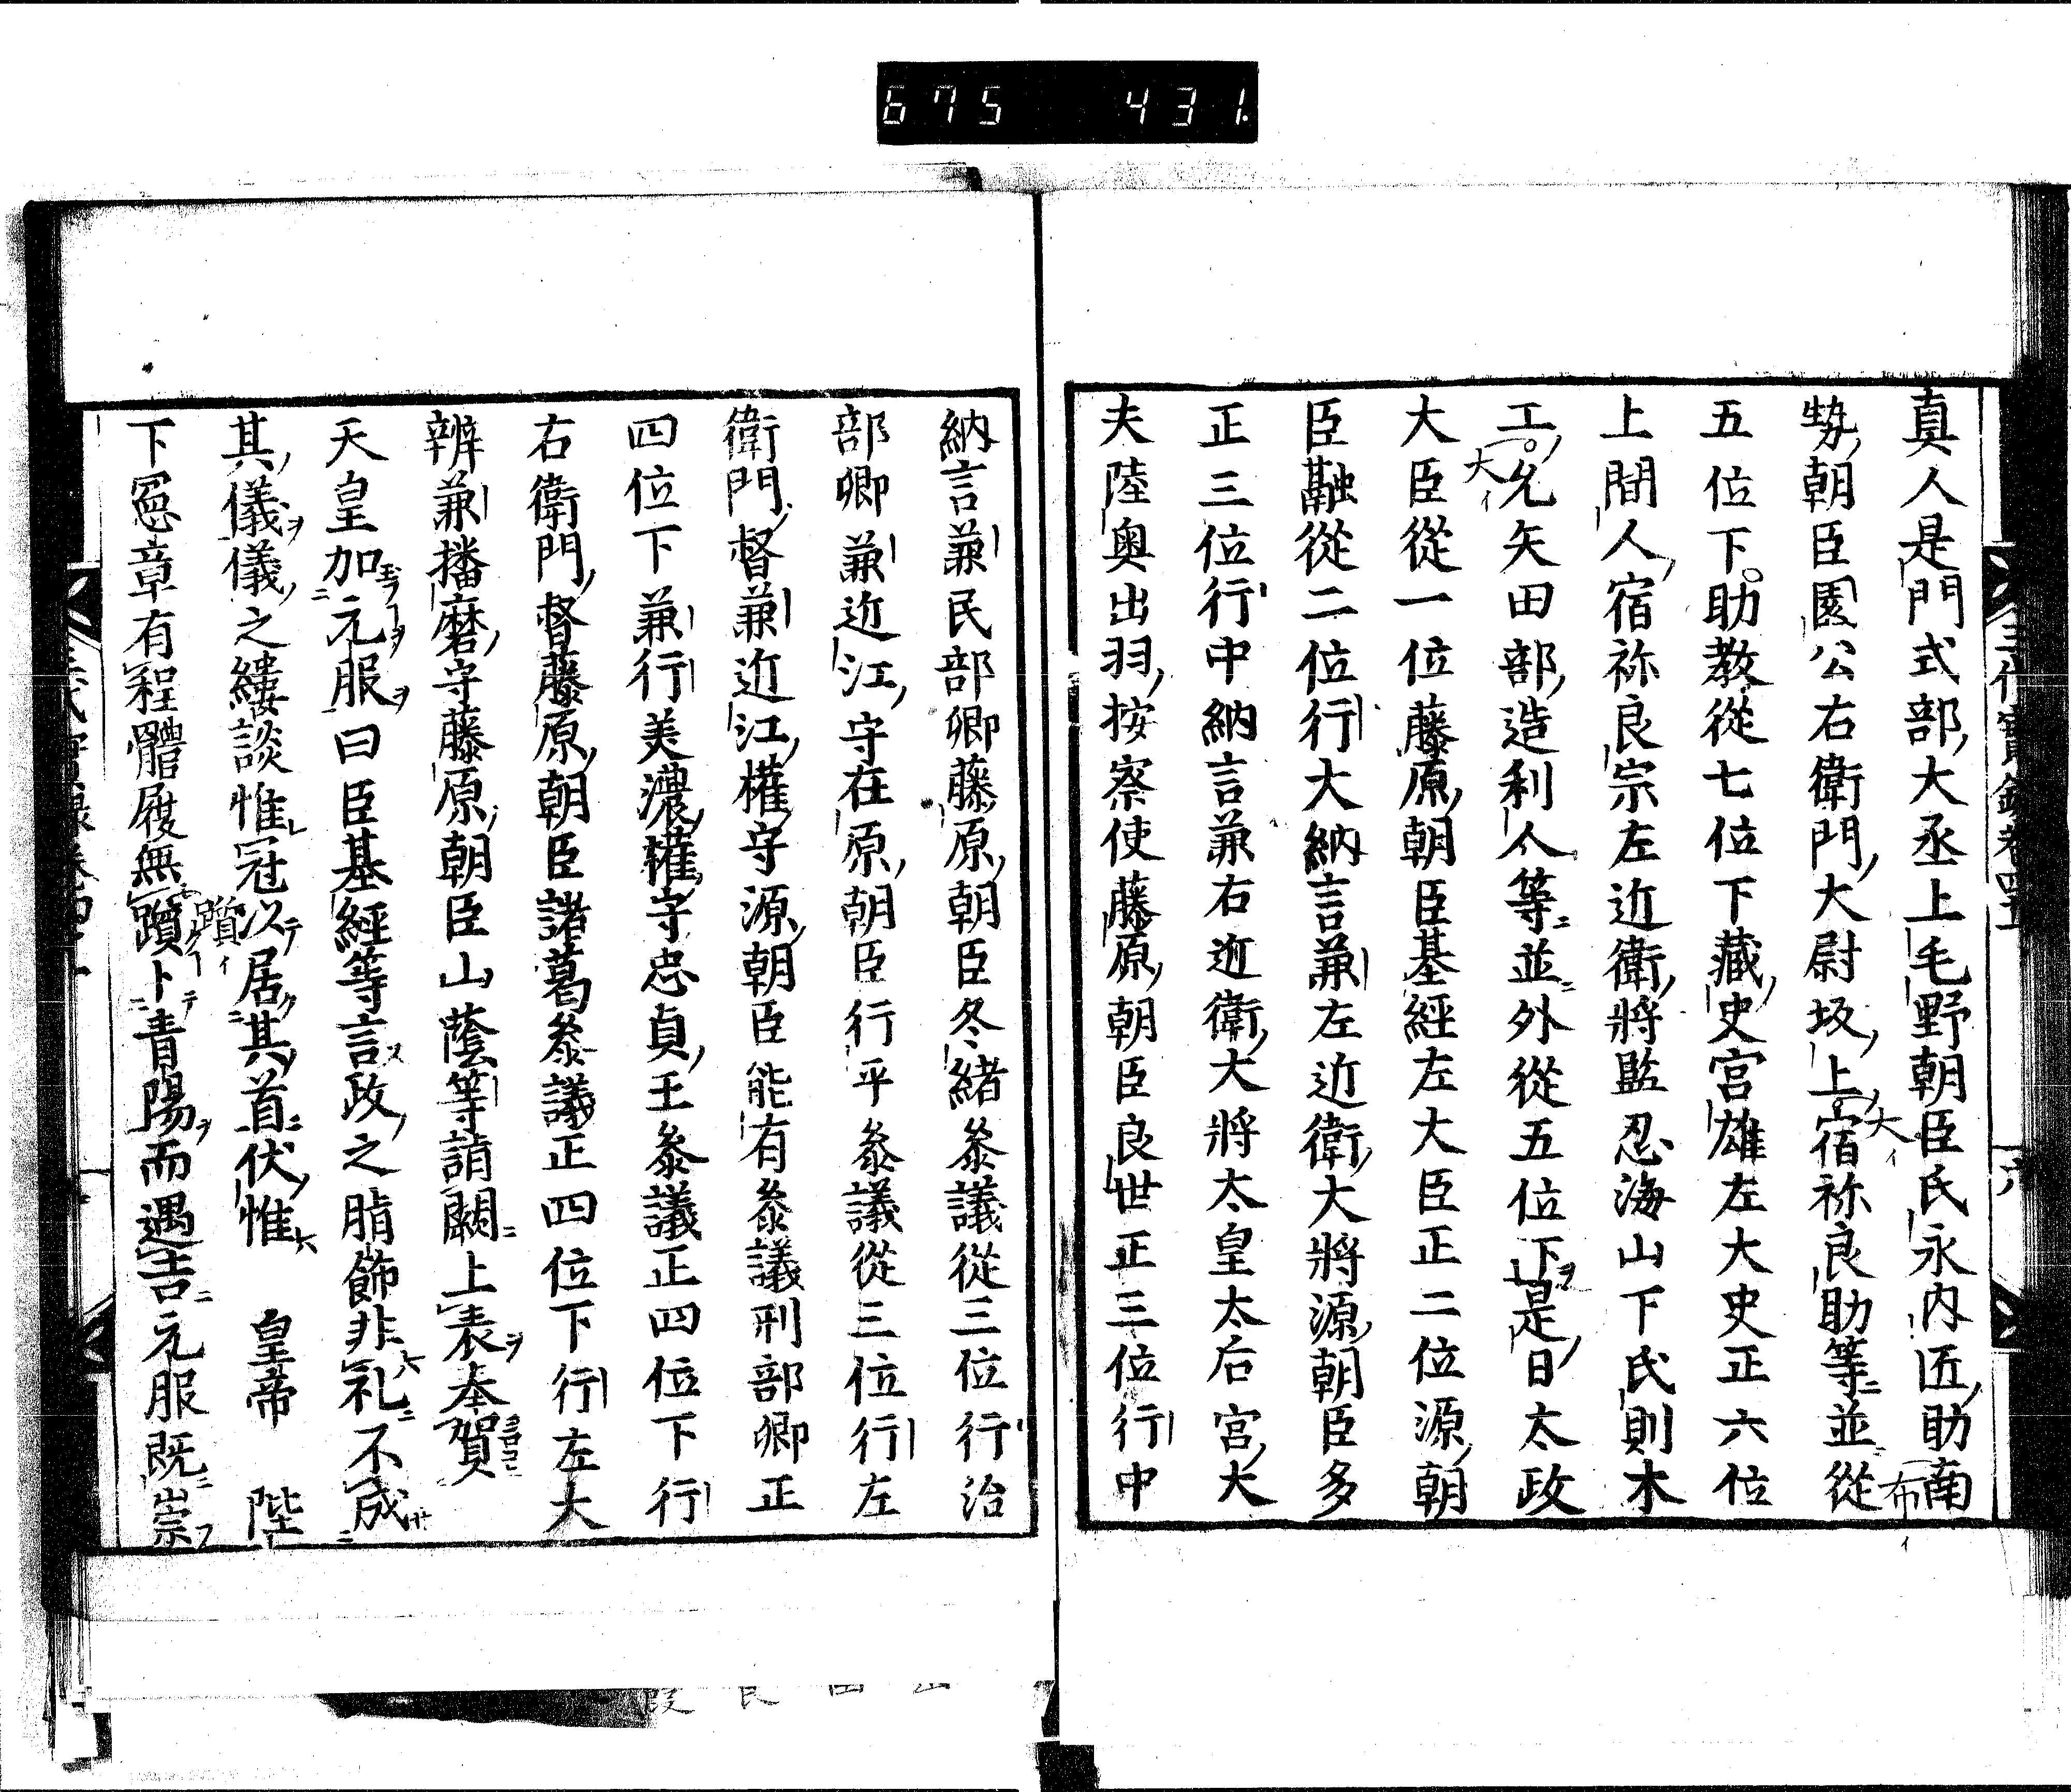 675 431.
真人是門式部大丞上毛野朝臣氏永内匠助南
勢朝臣園公右衛門大尉坂上宿祢良助等並從
五位下助教從七位下藏史宮雄左大史正六位
上間人宿祢良宗左近衛將監忍海山下氏則木
工允矢田部造利人等並外從五位下是日太政
大臣從一位藤原朝臣基經左大臣正二位源朝
臣融從二位行大納言兼左近衛大將源朝臣多
正三位行中納言兼右近衛大將太皇太后宮大
夫陸奥出羽按察使藤原朝臣良世正三位行中
納言兼民部卿藤原朝臣冬緒叅議從三位行治
部卿兼近江守在原朝臣行平叅議從三位行左
衛門督兼近江權守源朝臣能有叅議刑部卿正
四位下兼行美濃權守忠貞王叅議正四位下行
右衛門督藤原朝臣諸葛叅議正四位下行左大
辨兼播磨守藤原朝臣山蔭等詣闕上表奉賀
天皇加元服曰臣基經等言政之脂飾非礼不成
其儀儀之縷談惟冠以居其首伏惟 皇帝 陛
下寋章有程體履無躓卜青陽而遇吉元服既崇